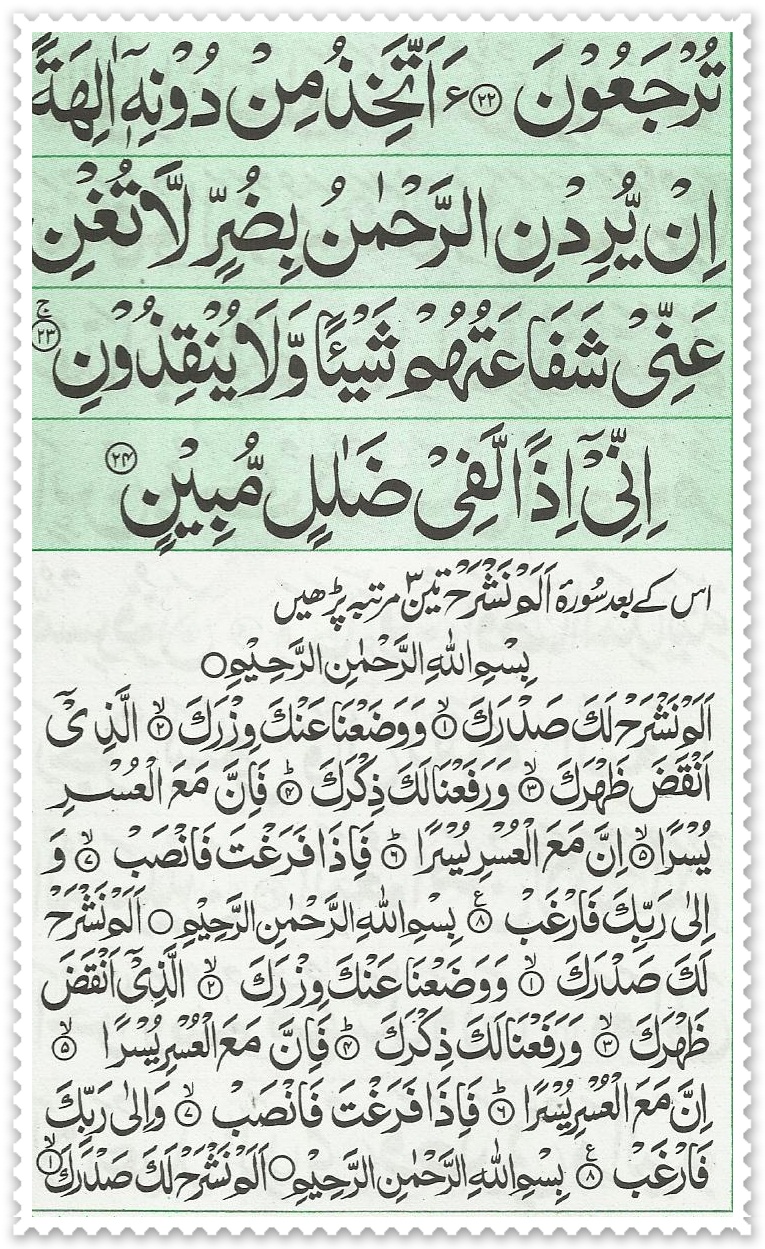 تُرْجَعُوْنَ ﴿۲۲﴾ ءَاَتَّخِذُ مِنْ دُوْنِهٖۤ اٰلِهَةً
اِنْ يُّرِدْنِ الرَّحْمٰنُ بِضُرٍّ لَّا تُغْنِ
عَنِّىْ شَفَاعَتُهُمْ شَيْـًٔا وَّلَا يُنْقِذُوْنِ ۚ﴿۲۳﴾
اِنِّىْۤ اِذًا لَّفِىْ ضَلٰلٍ مُّبِيْنٍ ﴿۲۴﴾
اس کے بعد سُورۂ اَلَمْ نَشْرَحْ تین ۳ مرتبہ پڑھیں
بِسْمِ اللهِ الرَّحْمٰنِ الرَّحِيْمِ ○
اَلَمْ نَشْرَحْ لَكَ صَدْرَكَ ۙ﴿۱﴾ وَوَضَعْنَا عَنْكَ وِزْرَكَ ۙ﴿۲﴾ الَّذِىْۤ
اَنْقَضَ ظَهْرَكَ ۙ﴿۳﴾ وَرَفَعْنَا لَكَ ذِكْرَكَ ؕ﴿۴﴾ فَاِنَّ مَعَ الْعُسْرِ
يُسْرًا ۙ﴿۵﴾ اِنَّ مَعَ الْعُسْرِ يُسْرًا ؕ﴿۶﴾ فَاِذَا فَرَغْتَ فَانْصَبْ ۙ﴿۷﴾ وَ
اِلٰى رَبِّكَ فَارْغَبْ ﴿۸﴾ع بِسْمِ اللهِ الرَّحْمٰنِ الرَّحِيْمِ ○ اَلَمْ نَشْرَحْ
لَكَ صَدْرَكَ ۙ﴿۱﴾ وَوَضَعْنَا عَنْكَ وِزْرَكَ ۙ﴿۲﴾ الَّذِىْۤ اَنْقَضَ
ظَهْرَكَ ۙ﴿۳﴾ وَرَفَعْنَا لَكَ ذِكْرَكَ ؕ﴿۴﴾ فَاِنَّ مَعَ الْعُسْرِ يُسْرًا ۙ﴿۵﴾
اِنَّ مَعَ الْعُسْرِ يُسْرًا ؕ﴿۶﴾ فَاِذَا فَرَغْتَ فَانْصَبْ ۙ﴿۷﴾ وَاِلٰى رَبِّكَ
فَارْغَبْ ﴿۸﴾ع بِسْمِ اللهِ الرَّحْمٰنِ الرَّحِيْمِ ○ اَلَمْ نَشْرَحْ لَكَ صَدْرَكَ ۙ﴿۱﴾